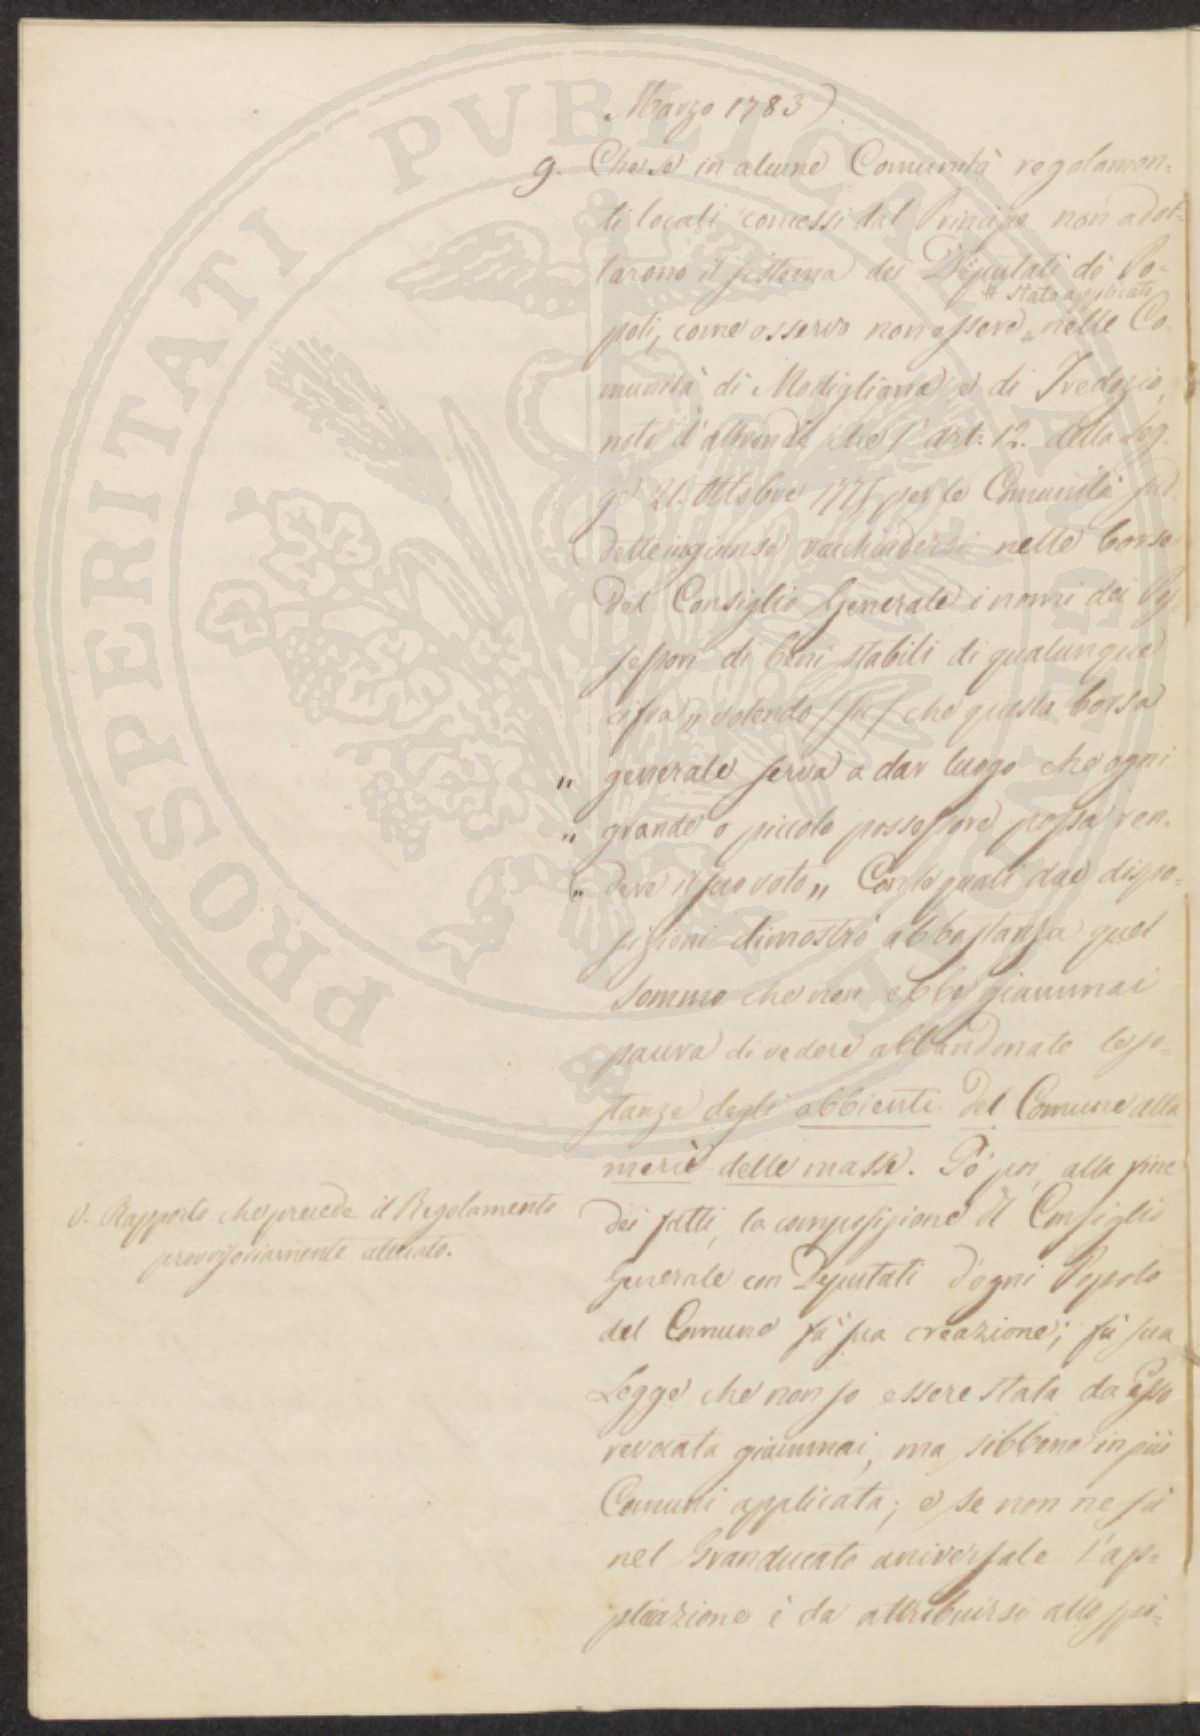 Marzo 1783)
9. Che se in alcune Comunità regolamen-
ti locali concessi dal Principe non adot-
tarono il sistema dei Deputati de' Po-
# stato applicato
poli, come osservo non essere # nelle Co-
munità di Modigliana e di Tredozio,
noto d'altronde che l'art: 12. della Leg-
ge 21. Ottobre 1775 per le Comunità sud-
dette ingiunse racchiudersi nelle borse
del Consiglio Generale i nomi dei Pos-
sessori di beni stabili di qualunque
cifra „ volendo che questa borsa
„ generale serva a dar luogo che ogni
„ grande o piccolo possessore possa ren-
„ dere il suo voto „ Con le quali due dispo-
sizioni dimostrò abbastanza quel
Sommo che non ebbe giammai
paura di vedere abbandonate le so-
stanze degli abbienti del Comune alla
mercè delle masse. Fo poi, alla fine
dei fatti, la composizione del Consiglio
Generale con Deputati d'ogni Popolo
del Comune fu sua creazione; fu sua
Legge che non so essere stata da Esso
revocata giammai, ma sibbene in più
Comuni applicata; e se non ne fu
nel Granducato universale l'ap-
plicazione è da attribuirsi allo spi-
V. Rapporto che precede il Regolamento
provvisoriamente attivato.
PROSPERITATI PUBLICAE AUGENDAE